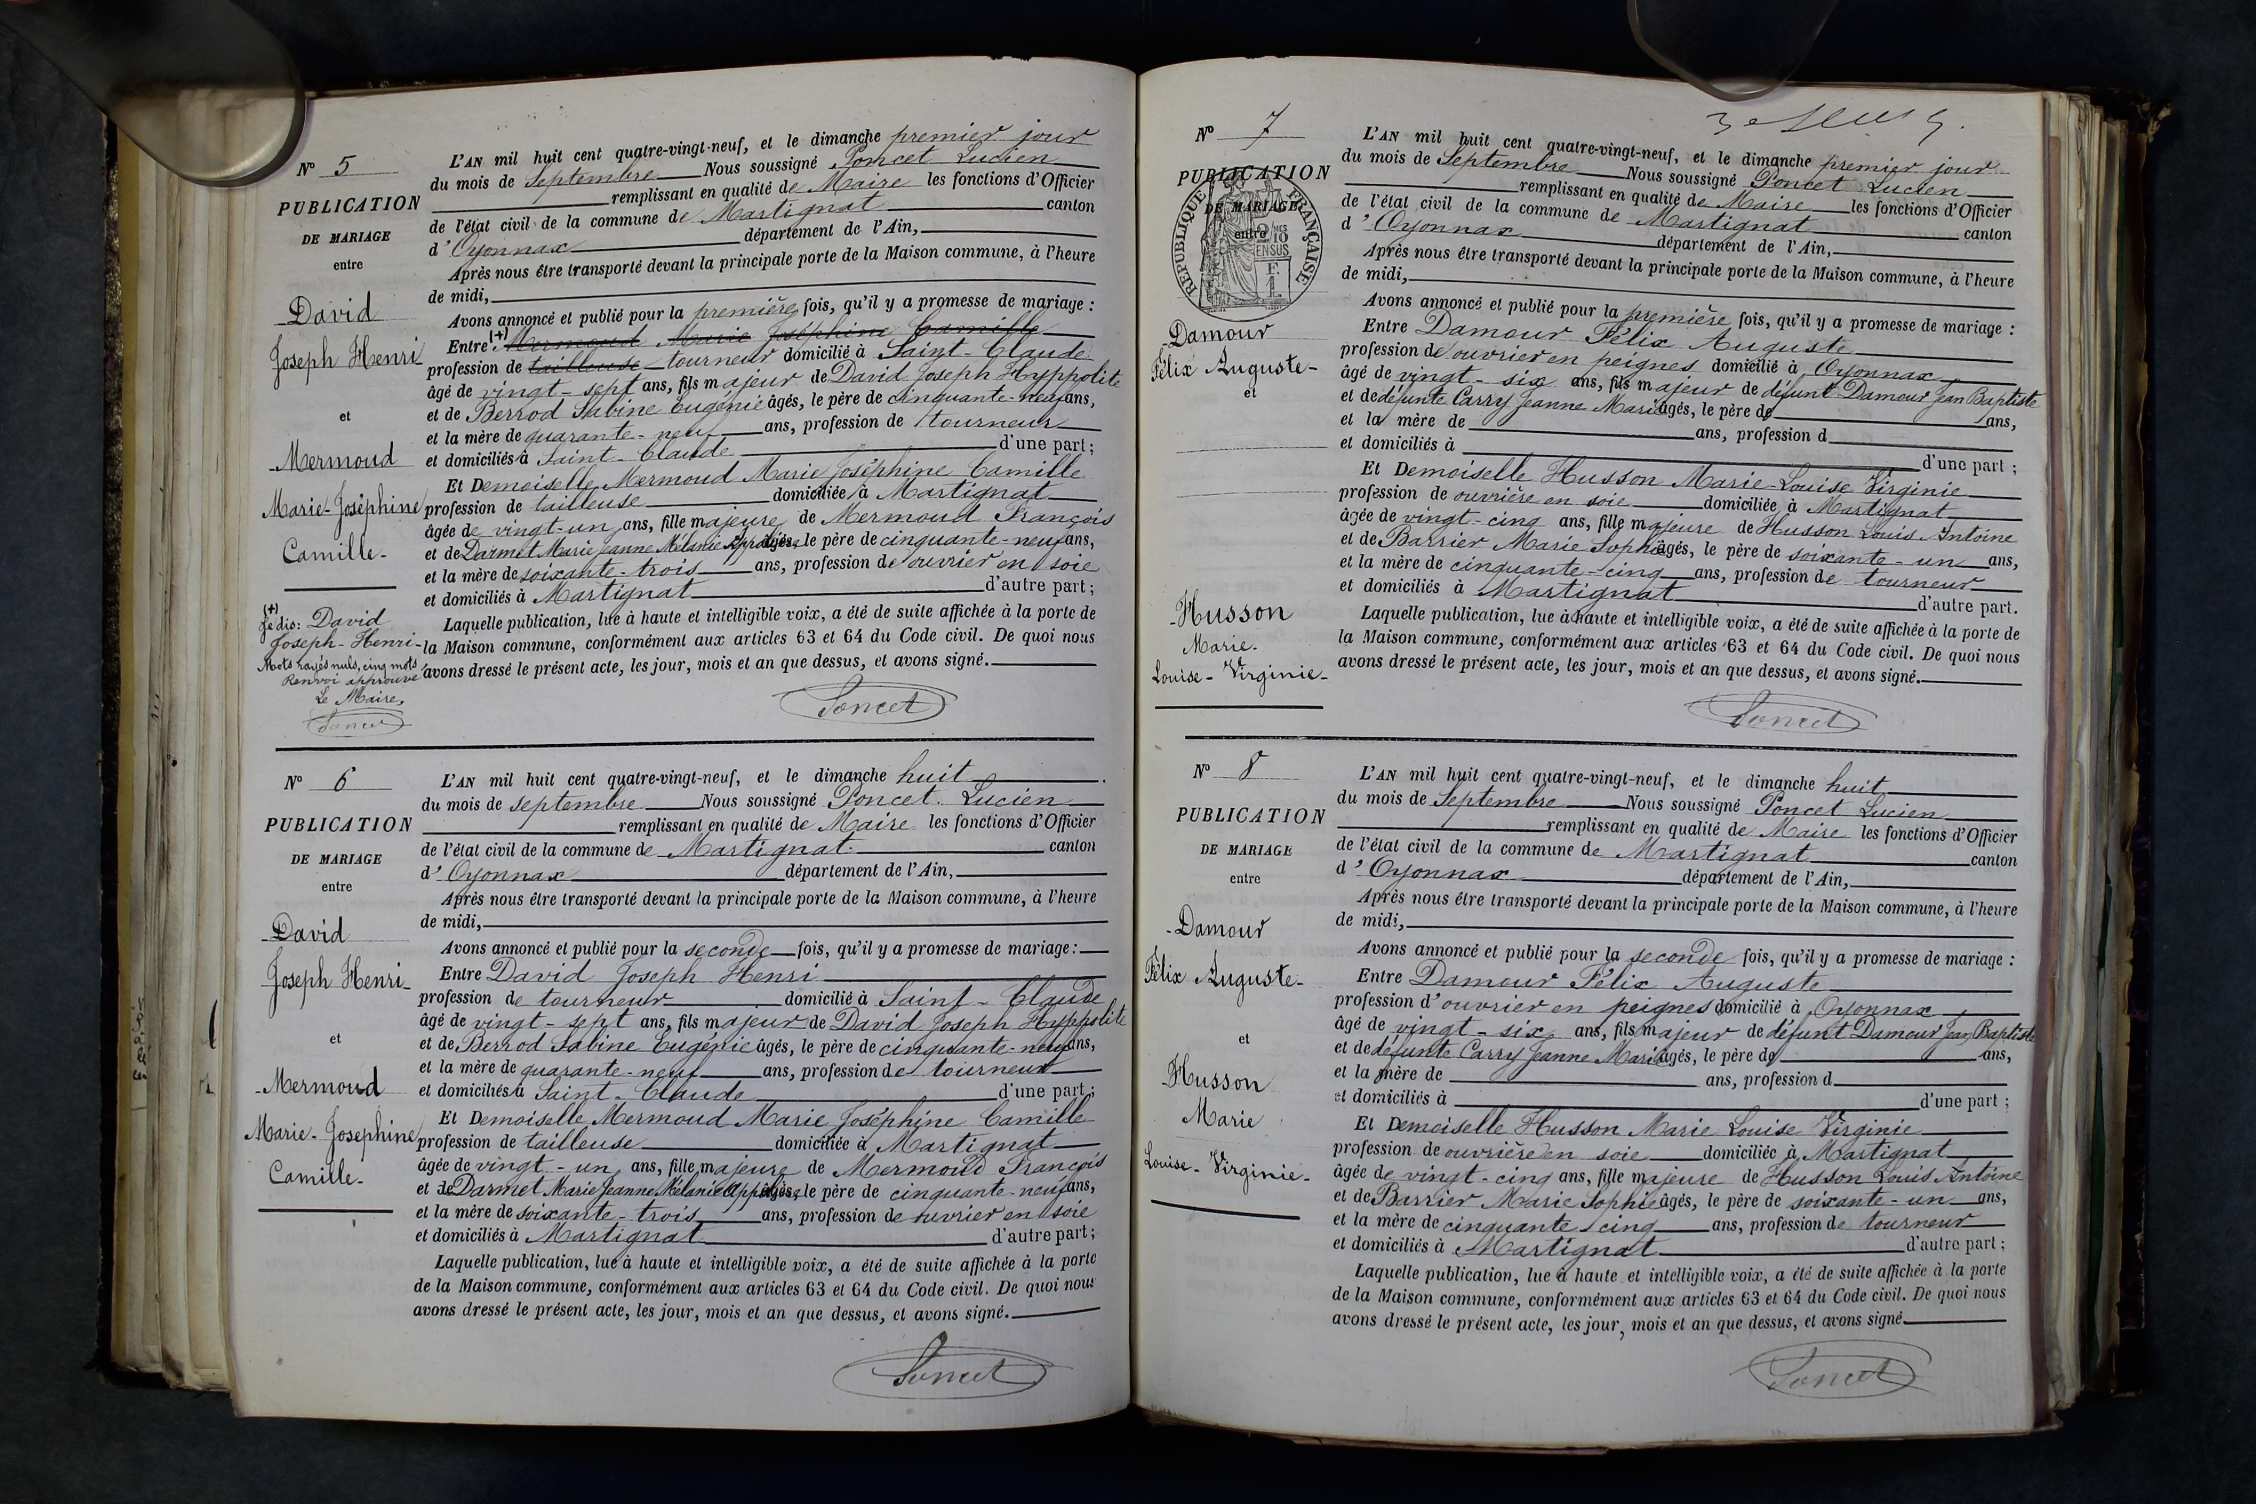 N° 5
PUBLICATION
DE MARIAGE
entre
David
Joseph Henri
et
Mermoud
Marie-Joséphine
Camille-
(+)
Je dis: David
Joseph-Henri-
Mots rayés nuls, cinq mots
Renvoi approuvé
Le Maire,
Poncet
L'AN mil huit cent quatre-vingt-neuf, et le dimanche premier jour
du mois de Septembre Nous soussigné Poncet Lucien
remplissant en qualité de Maire les fonctions d'Officier
de l'état civil de la commune de Martignat canton
d'Oyonnax département de l'Ain,
Après nous être transporté devant la principale porte de la Maison commune, à l'heure
de midi,
Avons annoncé et publié pour la première fois, qu'il y a promesse de mariage :
Entre (+) Mermoud Marie Joséphine Camille
profession de tailleuse tourneur domicilié à Saint-Claude
âgé de vingt-sept ans, fils majeur de David Joseph Hyppolite
et de Berrod Sabine Eugénie âgés, le père de cinquante-neuf ans,
et la mère de quarante-neuf ans, profession de tourneur
et domiciliés à Saint-Claude d'une part;
Et Demoiselle Mermoud Marie Joséphine Camille
profession de tailleuse domiciliée à Martignat
âgée de vingt-un ans, fille majeure de Mermoud François
et de Darmet Marie Jeanne Mélanie âgés, le père de cinquante-neuf ans,
et la mère de soixante-trois ans, profession de ouvrier en soie
et domiciliés à Martignat d'autre part;
Laquelle publication, lue à haute et intelligible voix, a été de suite affichée à la porte de
la Maison commune, conformément aux articles 63 et 64 du Code civil. De quoi nous
avons dressé le présent acte, les jour, mois et an que dessus, et avons signé.
Poncet
N° 6
PUBLICATION
DE MARIAGE
entre
David
Joseph Henri-
et
Mermoud
Marie-Josephine
Camille-
L'AN mil huit cent quatre-vingt-neuf, et le dimanche huit
du mois de septembre Nous soussigné Poncet Lucien
remplissant en qualité de Maire les fonctions d'Officier
de l'état civil de la commune de Martignat canton
d'Oyonnax département de l'Ain,
Après nous être transporté devant la principale porte de la Maison commune, à l'heure
de midi,
Avons annoncé et publié pour la seconde fois, qu'il y a promesse de mariage:
Entre David Joseph Henri
profession de tourneur domicilié à Saint-Claude
âgé de vingt-sept ans, fils majeur de David Joseph Hyppolite
et de Berrod Sabine Eugénie âgés, le père de cinquante-neuf ans,
et la mère de quarante-neuf ans, profession de tourneur
et domiciliés à Saint-Claude d'une part;
Et Demoiselle Mermoud Marie Joséphine Camille
profession de tailleuse domiciliée à Martignat
âgée de vingt-un ans, fille majeure de Mermoud François
et de Darmet Marie Jeanne Mélanie âgés, le père de cinquante-neuf ans,
et la mère de soixante-trois ans, profession de ouvrier en soie
et domiciliés à Martignat d'autre part;
Laquelle publication, lue à haute et intelligible voix, a été de suite affichée à la porte
de la Maison commune, conformément aux articles 63 et 64 du Code civil. De quoi nous
avons dressé le présent acte, les jour, mois et an que dessus, et avons signé.
Poncet
N° 7
PUBLICATION
DE MARIAGE
entre
RÉPUBLIQUE FRANÇAISE
2/10
EN SUS
Damour
Félix Auguste-
et
Husson
Marie-
Louise-Virginie-
L'AN mil huit cent quatre-vingt-neuf, et le dimanche premier jour
du mois de Septembre Nous soussigné Poncet Lucien
remplissant en qualité de Maire les fonctions d'Officier
de l'état civil de la commune de Martignat canton
d'Oyonnax département de l'Ain,
Après nous être transporté devant la principale porte de la Maison commune, à l'heure
de midi,
Avons annoncé et publié pour la première fois, qu'il y a promesse de mariage :
Entre Damour Félix Auguste
profession de ouvrier en peignes domicilié à Oyonnax
âgé de vingt-six ans, fils majeur de défunt Damour Jean Baptiste
et de défunte Carry Jeanne Marie âgés, le père de ans,
et la mère de ans, profession d
et domiciliés à d'une part ;
Et Demoiselle Husson Marie-Louise Virginie
profession de ouvrière en soie domiciliée à Martignat
âgée de vingt-cinq ans, fille majeure de Husson Louis Antoine
et de Barrier Marie Sophie âgés, le père de soixante-un ans,
et la mère de cinquante-cinq ans, profession de tourneur
et domiciliés à Martignat d'autre part.
Laquelle publication, lue à haute et intelligible voix, a été de suite affichée à la porte de
la Maison commune, conformément aux articles 63 et 64 du Code civil. De quoi nous
avons dressé le présent acte, les jour, mois et an que dessus, et avons signé.
Poncet
N° 8
PUBLICATION
DE MARIAGE
entre
Damour
Félix Auguste-
et
Husson
Marie
Louise-Virginie-
L'AN mil huit cent quatre-vingt-neuf, et le dimanche huit
du mois de Septembre Nous soussigné Poncet Lucien
remplissant en qualité de Maire les fonctions d'Officier
de l'état civil de la commune de Martignat canton
d'Oyonnax département de l'Ain,
Après nous être transporté devant la principale porte de la Maison commune, à l'heure
de midi,
Avons annoncé et publié pour la seconde fois, qu'il y a promesse de mariage :
Entre Damour Félix Auguste
profession d'ouvrier en peignes domicilié à Oyonnax
âgé de vingt-six ans, fils majeur de défunt Damour Jean Baptiste
et de défunte Carry Jeanne Marie âgés, le père de ans,
et la mère de ans, profession d
et domiciliés à d'une part ;
Et Demoiselle Husson Marie Louise Virginie
profession de ouvrière en soie domiciliée à Martignat
âgée de vingt-cinq ans, fille majeure de Husson Louis Antoine
et de Barrier Marie Sophie âgés, le père de soixante-un ans,
et la mère de cinquante cinq ans, profession de tourneur
et domiciliés à Martignat d'autre part ;
Laquelle publication, lue à haute et intelligible voix, a été de suite affichée à la porte
de la Maison commune, conformément aux articles 63 et 64 du Code civil. De quoi nous
avons dressé le présent acte, les jour, mois et an que dessus, et avons signé
Poncet